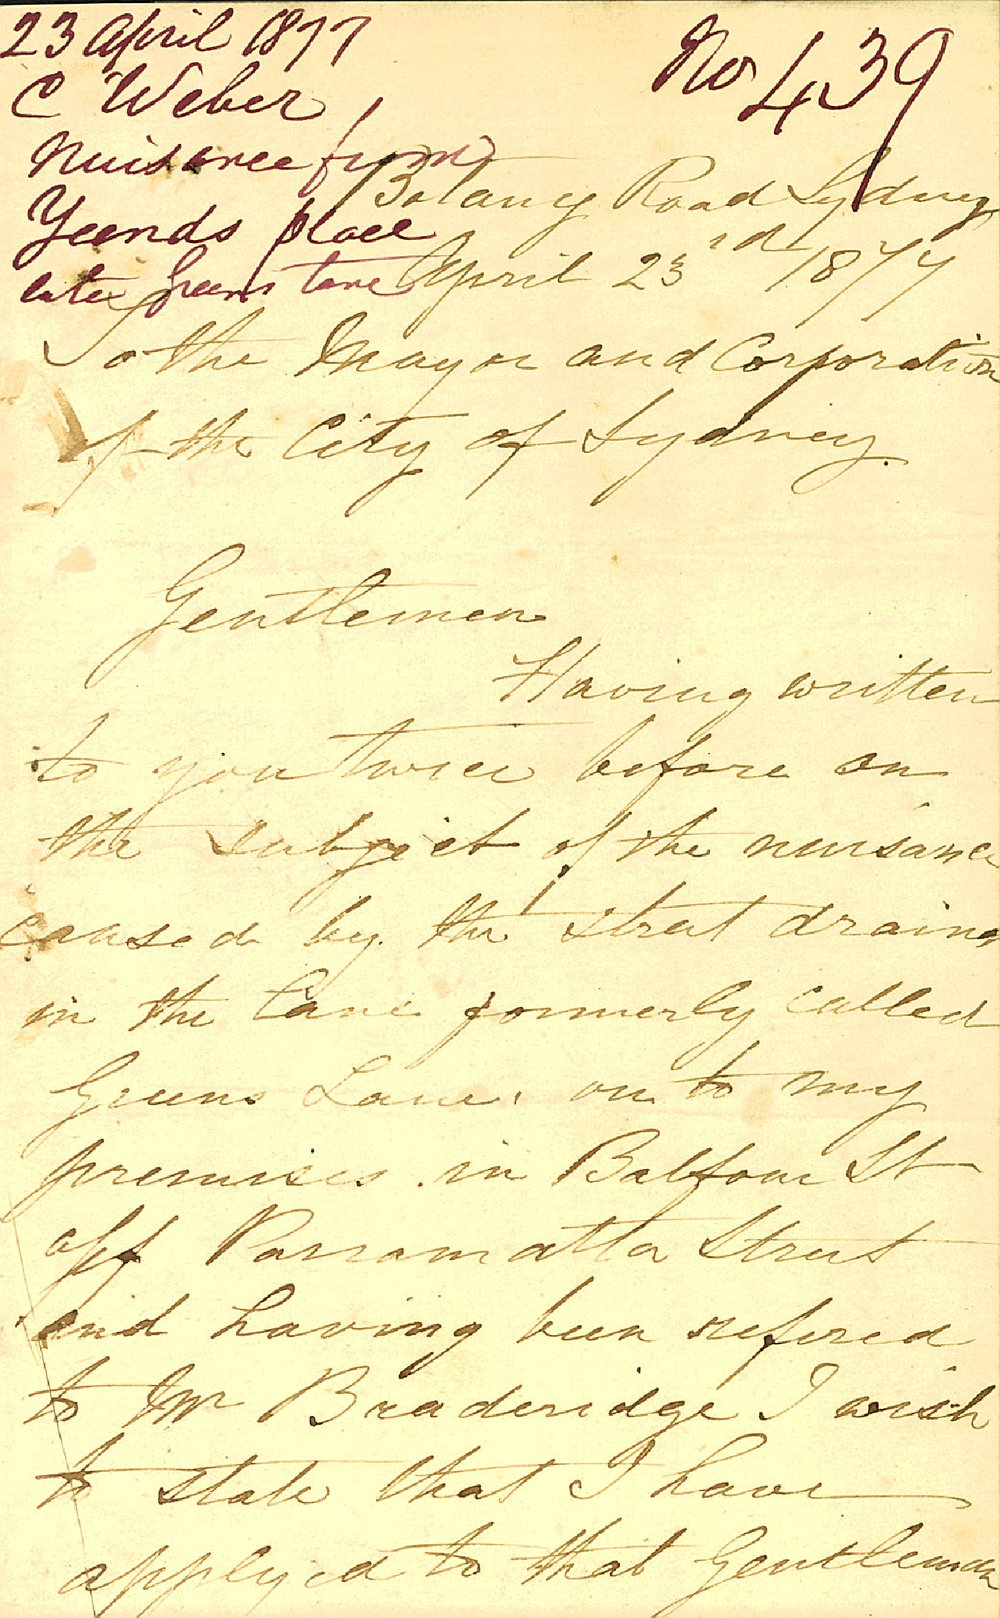 23 April 1877
C Weber
Nuisance from
Yeends place
late Greens Lane
No 439
Botany Road Sydney
April 23rd 1877
To the Mayor and Corporation
of the City of Sydney.
Gentlemen
Having written
to you twice before on
the subject of the nuisance
caused by the street drains
in the Lane formerly called
Greens Lane. on to my
premises in Balfour St
off Parramatta Street
and having been refered
to Mr Braderidge I wish
to state that I have
applyed to that Gentleman